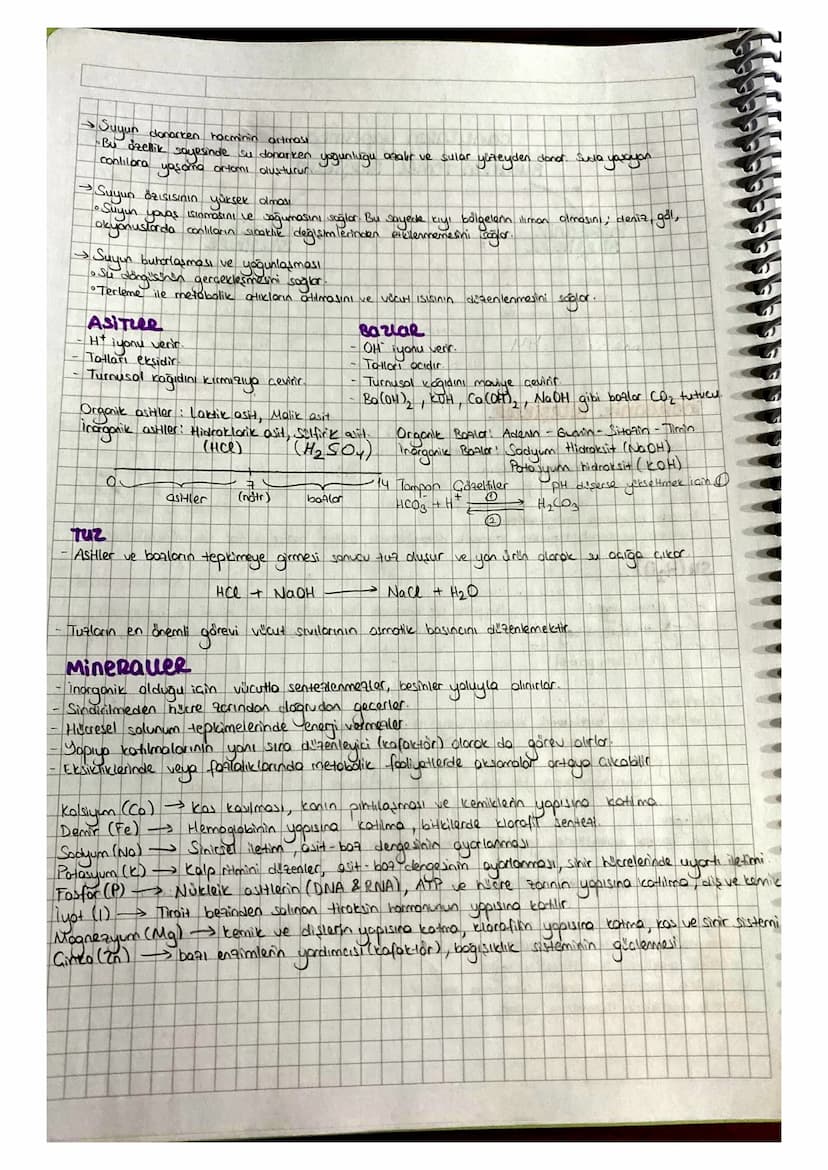 → Suyun donarken hacminin artması
• Bu özellik sayesinde su donarken yoğunluğu azalır ve sular yüzeyden donar. Suda yaşayan
canlılara yaşama ortamı oluşturur.
→ Suyun özısısının yüksek olması
• Suyun yavaş ısınmasını ve soğumasını sağlar. Bu sayede kıyı bölgelerin ılıman olmasını; deniz, göl,
okyanuslarda canlıların sıcaklık değişimlerinden etkilenmemesini sağlar.
→ Suyun buharlaşması ve yoğunlaşması
• Su döngüsünün gerçekleşmesini sağlar.
• Terleme ile metabolik atıkların atılmasını ve vücut ısısının düzenlenmesini sağlar.
ASİTLER
- H⁺ iyonu verir.
- Tatları ekşidir.
- Turnusol kağıdını kırmızıya çevirir.
Organik asitler: Laktik asit, Malik asit
İnorganik asitler: Hidroklorik asit, Sülfirik asit.
(HCl) (H₂SO₄)
BAZLAR
- OH⁻ iyonu verir.
- Tatları acıdır.
- Turnusol kağıdını maviye çevirir.
- Ba(OH)₂, KOH, Ca(OH)₂, NaOH gibi bazlar CO₂ tutucu
Organik Bazlar: Adenin - Guanin - Sitozin - Timin
İnorganik Bazlar: Sodyum Hidroksit (NaOH)
Potasyum hidroksit (KOH)
0 7 14
asitler (nötr) bazlar
Tampon Çözeltiler PH düşerse yükseltmek için ①
HCO₃⁻ + H⁺ ① ② H₂CO₃
TUZ
- Asitler ve bazların tepkimeye girmesi sonucu tuz oluşur ve yan ürün olarak su açığa çıkar
HCl + NaOH → NaCl + H₂O
- Tuzların en önemli görevi vücut sıvılarının osmotik basıncını düzenlemektir.
MİNERALLER
- İnorganik olduğu için vücutta sentezlenmezler, besinler yoluyla alınırlar.
- Sindirilmeden hücre zarından doğrudan geçerler.
- Hücresel solunum tepkimelerinde enerji vermezler.
- Yapıya katılmalarının yanı sıra düzenleyici (kofaktör) olarak da görev alırlar.
- Eksikliklerinde veya fazlalıklarında metabolik faaliyetlerde aksamalar ortaya çıkabilir
Kalsiyum (Ca) → Kas kasılması, kanın pıhtılaşması ve kemiklerin yapısına katılma
Demir (Fe) → Hemoglobinin yapısına katılma, bitkilerde klorofil sentezi
Sodyum (Na) → Sinirsel iletim, asit-baz dengesinin ayarlanması
Potasyum (K) → Kalp ritmini düzenler, asit-baz dengesinin ayarlanması, sinir hücrelerinde uyartı iletimi
Fosfor (P) → Nükleik asitlerin (DNA & RNA), ATP ve hücre zarının yapısına katılma, diş ve kemik
İyot (I) → Tiroit bezinden salınan tiroksin hormonunun yapısına katılır
Magnezyum (Mg) → kemik ve dişlerin yapısına katma, klorofilin yapısına katma, kas ve sinir sistemi
Çinko (Zn) → bazı enzimlerin yardımcısı (kofaktör), bağışıklık sisteminin güçlenmesi